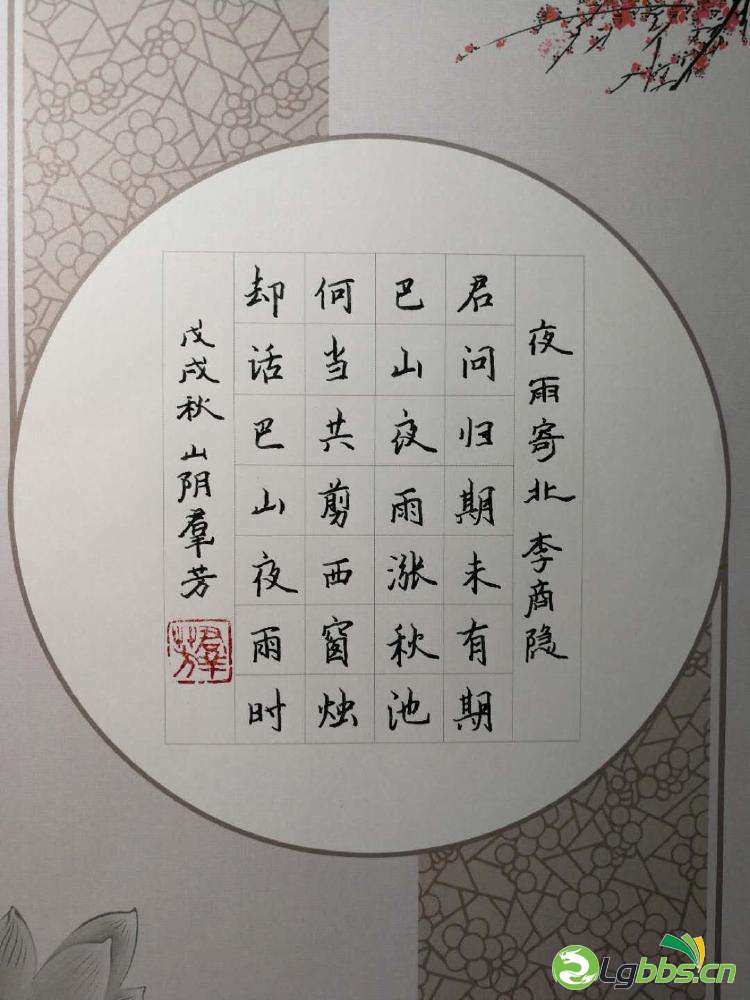 夜雨寄北 李商隐
君问归期未有期
巴山夜雨涨秋池
何当共剪西窗烛
却话巴山夜雨时
戊戌秋山阴羣芳
羣芳
Lgbbs.cn